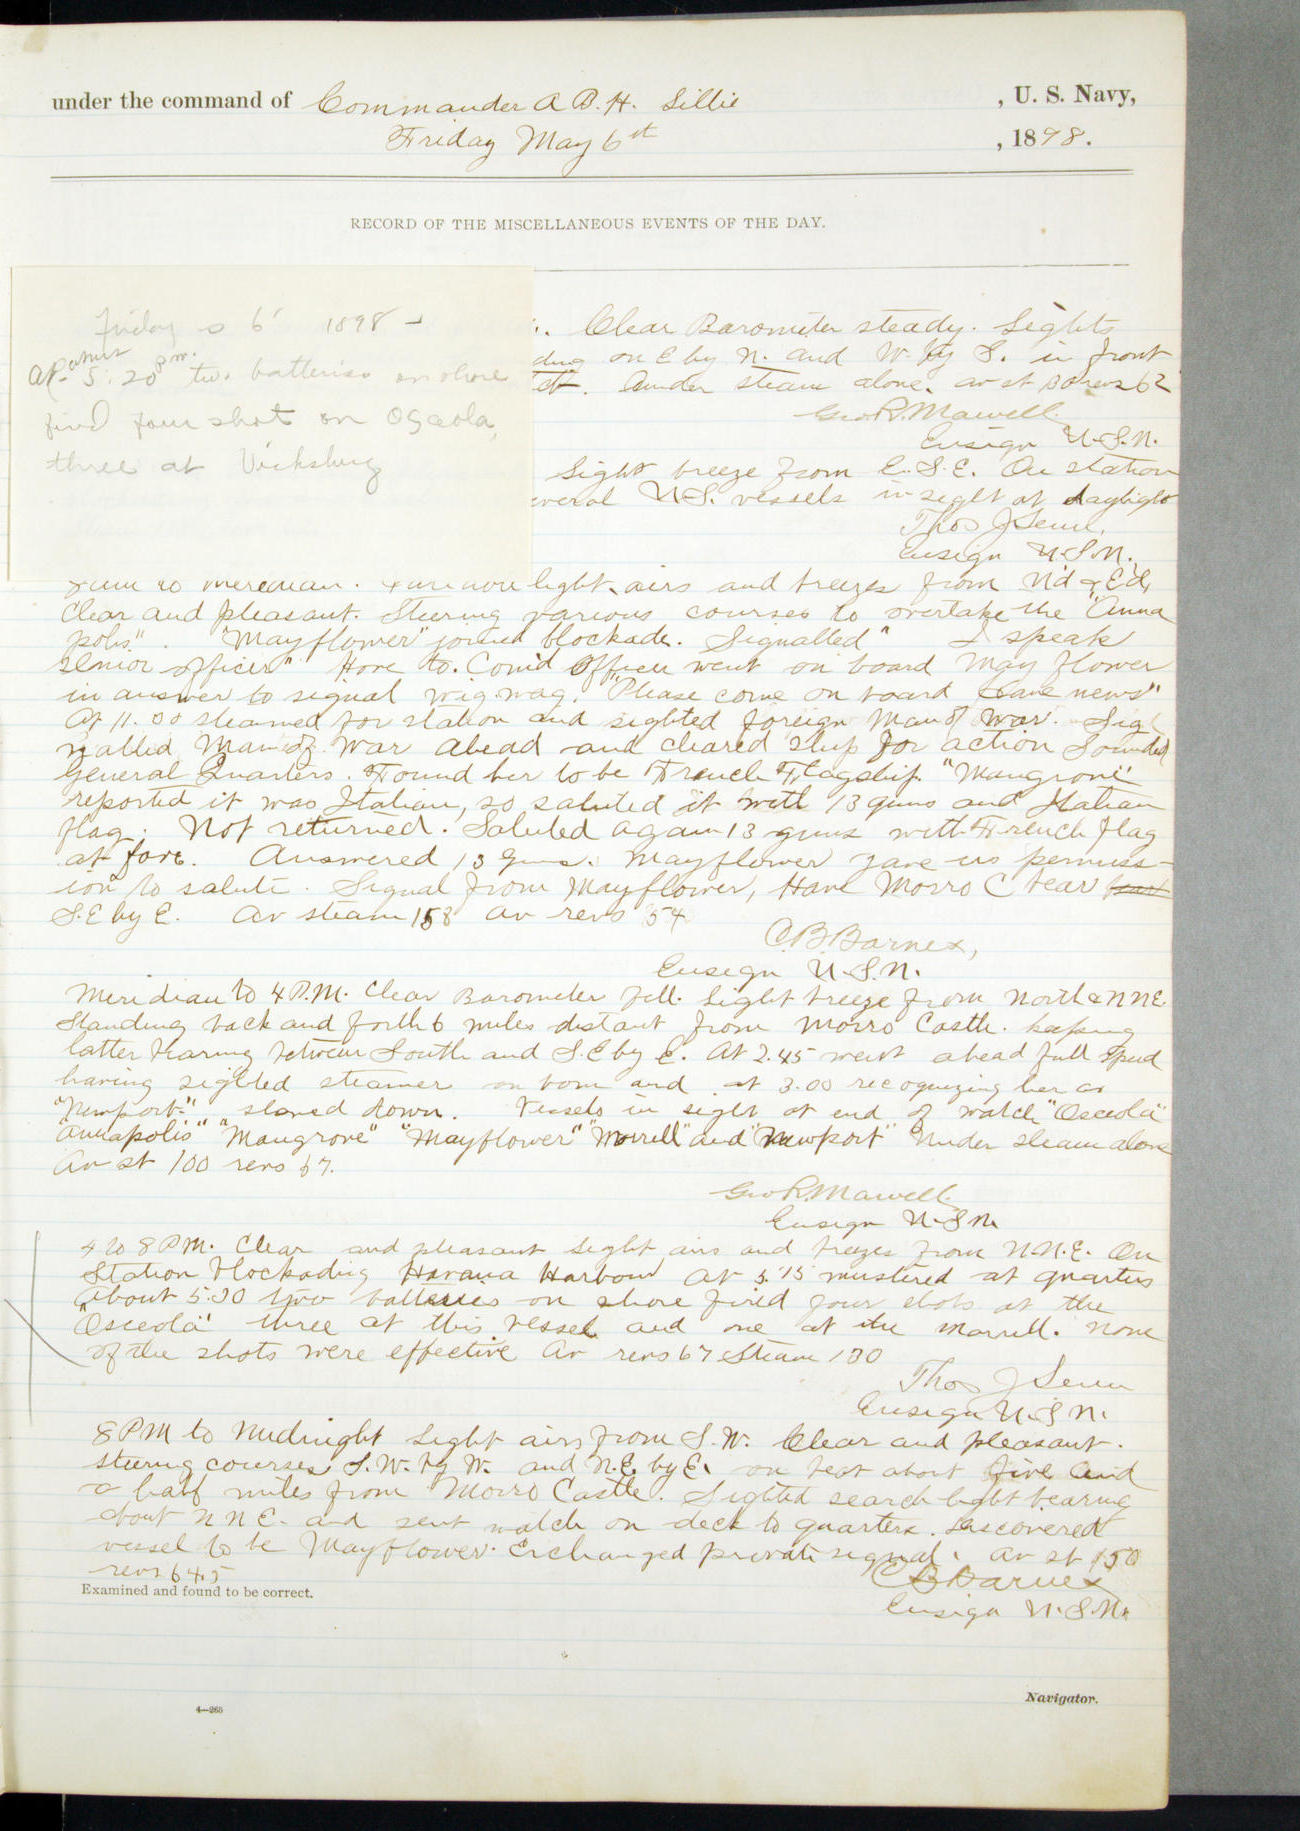 under the command of Commander A B. H. Lillie , U. S. Navy,
Friday May 6st , 1898.
RECORD OF THE MISCELLANEOUS EVENTS OF THE DAY.
Friday 6 1898 -
about
At 5.20 pm. two batteries on shore
fired four shot on Osceola,
three at Vicksburg
Clear Barometer steady. Lights
on E by N. and W. by S. in front
Under steam alone. av st 80 revs 62
Geo. R. Marvell
Ensign U.S.N.
Light breeze from E.S.E. On station
several U.S. vessels in sight at daylight
Thos J Senn,
Ensign U.S.N.
to Meridian. light airs and breezes from N'd & E'd,
Clear and pleasant. Steering various courses to overtake the "Anna
polis". "Mayflower" joined blockade. Signalled " I speak
senior officer" Hove to. Com'd Officer went on board Mayflower
in answer to signal wigwag. "Please come on board have news"
At 11.00 steamed for station and sighted foreign Man of War. Sig
nalled Man of War ahead and cleared ship for action Sounded
General Quarters. Found her to be French Flagship. "Mangrove"
reported it was Italian, so saluted it with 13 guns and Italian
flag. Not returned. Saluted again 13 guns with French flag
at fore. Answered 13 Guns. Mayflower gave us permiss-
ion to salute. Signal from Mayflower, Have Morro C bear
S.E by E. Av steam 158 av revs 54
C.B. Barnes,
Ensign U.S.N.
Meridian to 4 P.M. Clear Barometer fell. Light breeze from North & NNE.
Standing back and forth 6 miles distant from Morro Castle. keeping
latter bearing between South and S.E by E. At 2.45 went ahead full speed
having sighted steamer on bow and at 3.00 recognizing her as
"Newport" slowed down. Vessels in sight at end of watch "Osceola"
"Annapolis" "Mangrove" "Mayflower" "Morrill" and "Newport" Under steam alone
Av st 100 revs 67.
Geo R. Marvell
Ensign U.S.N.
4 to 8 P.M. Clear and pleasant Light airs and breezes from N.N.E. On
Station blockading Havana Harbour At 5.15 mustered at quarters
About 5.30 two batteries on shore fired four shots at the
"Osceola" three at this vessel and one at the Morrill. None
of the shots were effective Av revs 67 Steam 130
Thos J Senn
Ensign U.S.N.
8 PM to Midnight Light airs from S.W. Clear and pleasant.
Steering courses S.W. by W. and N.E. by E. on beat about five and
a half miles from Morro Castle. Sighted search light bearing
about NNE. and sent watch on deck to quarters. Discovered
vessel to be Mayflower. Exchanged private signal. Av st 150
revs 64.5
C B Barnes
Examined and found to be correct.
Ensign U.S.N.
4—265
Navigator.